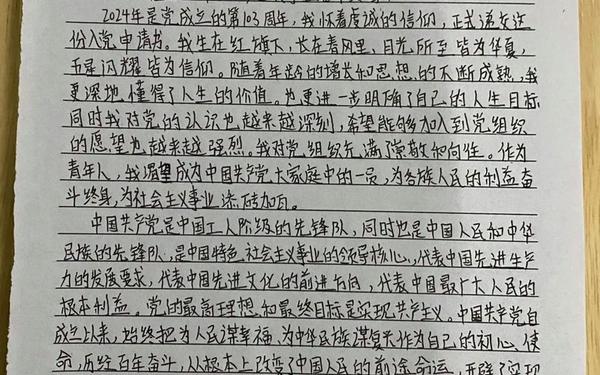 2024年是党成立的第103周年，我怀着虔诚的信仰，正式递交这
份入党申请书。我生在红旗下，长在春风里，目光所至皆为华夏，
五星闪耀皆为信仰。随着年龄的增长和思想的不断成熟，我
更深地懂得了人生的价值。也更进一步明确了自己的人生目标
同时我对党的认识也越来越深刻，希望能够加入到党组织
的愿望也越来越强烈。我对党组织充满了崇敬和向往。作为
青年人，我渴望成为中国共产党大家庭中的一员，为各族人民的利益奋
斗终身，为社会主义事业添砖加瓦。
中国共产党是中国工人阶级的先锋队，同时也是中国人民和中华
民族的先锋队，是中国特色社会主义事业的领导核心，代表中国先进生产
力的发展要求，代表中国先进文化的前进方向，代表中国最广大人民的
根本利益。党的最高理想和最终目标是实现共产主义。中国共产党自
成立以来，始终把为人民谋幸福、为中华民族谋复兴作为自己的初心使
命，历经百年奋斗，从根本上改变了中国人民的前途命运，开辟了实现